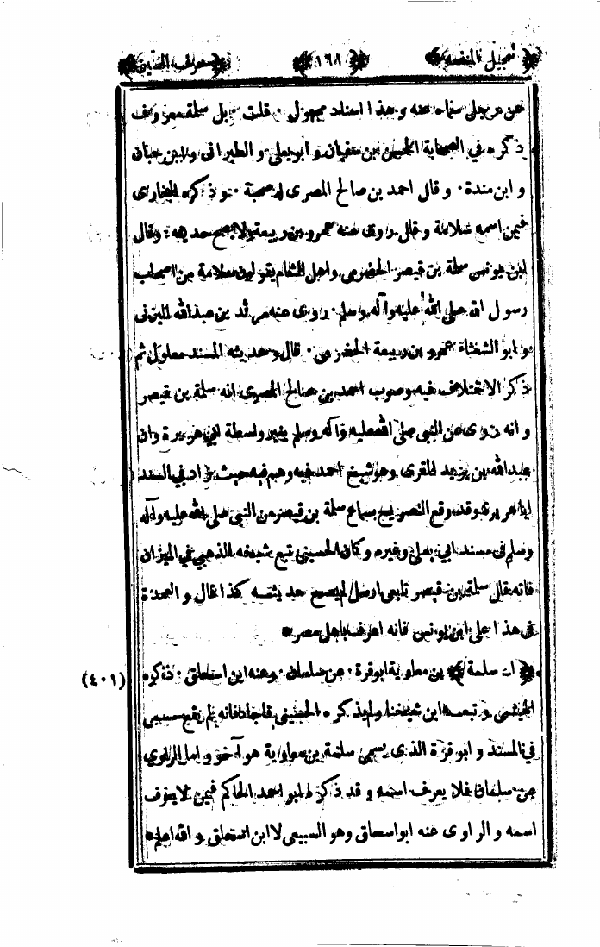 تعجيل المنفعة ١٦٨ حرف السين
عن رجل سماه عنه وهذا اسناد مجهول . قلت بل سلمة معروف
ذكره في الصحابة الحسن بن سفيان وابويعلى والطبراني وابن حبان
وابن مندة . وقال احمد بن صالح المصري له صحبة . وذكره البخاري
فيمن اسمه سلامة وقال روى عنه عمرو بن ربيعة لا يصح حديثه . وقال
ابن يونس سلمة بن قيصر الحضرمي واهل الشام يقولون سلامة من اصحاب
رسول الله صلى الله عليه وآله وسلم . روى عنه مرثد بن عبدالله اليزني
وابو الشعثاء عمرو بن ربيعة الحضرمي . قال وحديثه المسند معلول ثم
ذكر الاختلاف فيه وصوب احمد بن صالح المصري انه سلمة بن قيصر
وانه روى عن النبي صلى الله عليه وآله وسلم بغير واسطة ابي هريرة وان
عبدالله بن يزيد المقرى وهو شيخ احمد فيه وهم فيه حيث زاد في السند
اباهريرة وقد وقع التصريح بسماع سلمة بن قيصر من النبي صلى الله عليه وآله
وسلم في مسند ابي يعلى وغيره وكان الحسيني تبع شيخه الذهبي في الميزان
فانه قال سلمة بن قيصر تابعي ارسل لم يصح حديثه كذا قال والعمدة
في هذا على ابن يونس فانه اعرف باهل مصر *
(٤٠١) ﴿ ا - سلمة ﴾ بن معاوية ابوقرة . عن سلمان . وعنه ابن اسحاق . ذكره
الحسيني وتبعه ابن شيخنا ولم يذكره الهيثمي فاجاد فانه لم يقع مسمى
في المسند وابوقرة الذي يسمى سلمة بن معاوية هو آخر واما الراوي
عن سلمان فلا يعرف اسمه وقد ذكره ابو احمد الحاكم فيمن لا يعرف
اسمه والراوي عنه ابواسحاق وهو السبيعي لا ابن اسحاق والله اعلم *